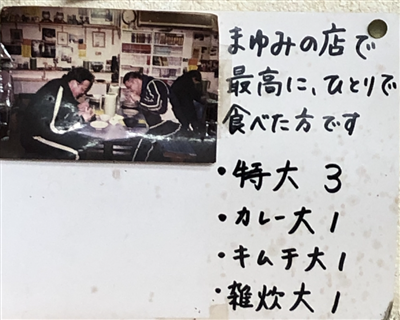 まゆみの店で
最高に、ひとりで
食べた方です
・特大 3
・カレー大 1
・キムチ大 1
・雑炊大 1